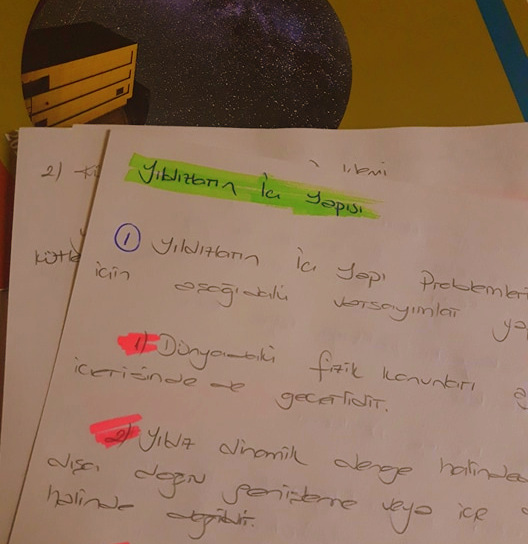 2)
Yıldızların İç Yapısı
1 Yıldızların İç Yapı Problemleri
için aşağıdaki varsayımlar
1) Dünyadaki fizik kanunları
içerisinde de geçerlidir.
2) Yıldız dinamik denge halinde
dışa doğru genişleme veya içe
halinde değildir.